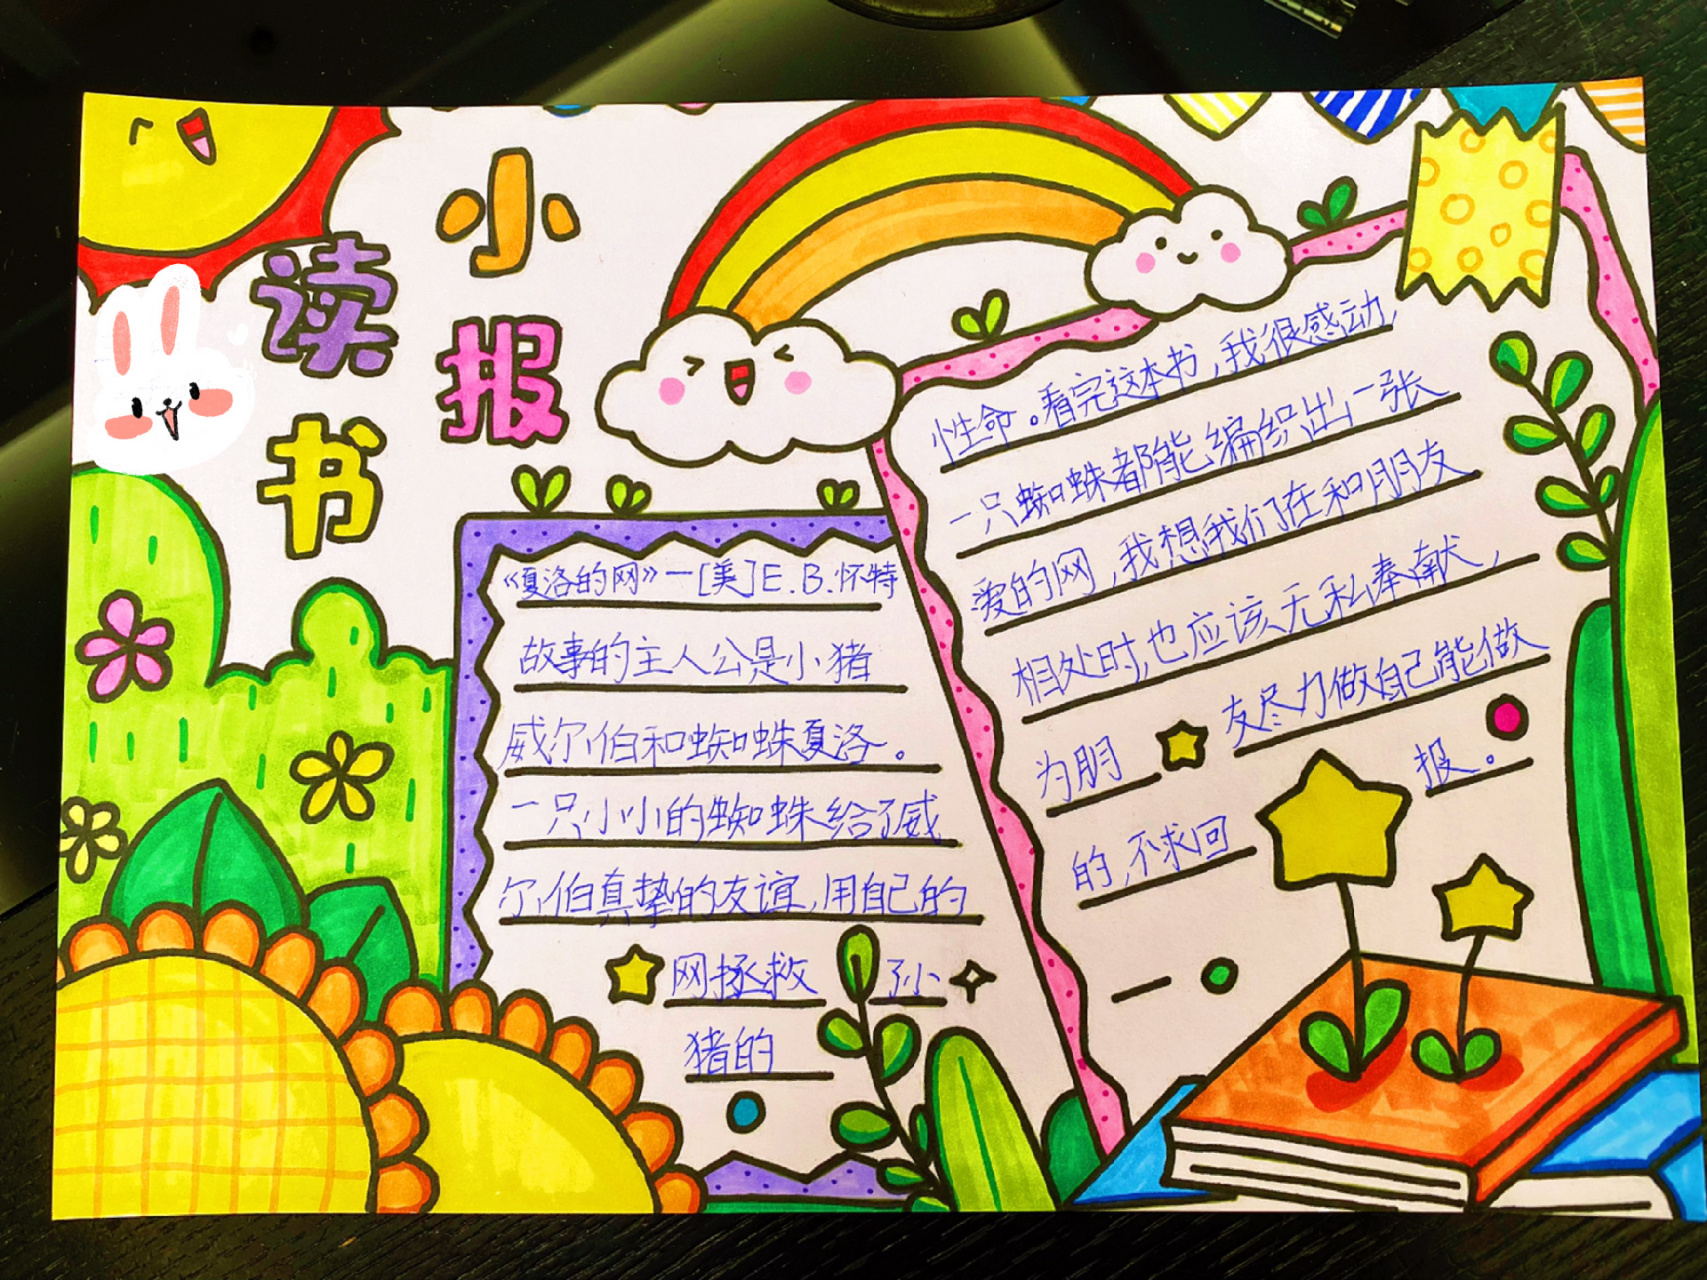 读书
小报
《夏洛的网》—[美]E.B.怀特
故事的主人公是小猪
威尔伯和蜘蛛夏洛。
一只小小的蜘蛛给了威
尔伯真挚的友谊,用自己的
网拯救 了小
猪的
性命。看完这本书,我很感动,
一只蜘蛛都能编织出一张
爱的网,我想我们在和朋友
相处时,也应该无私奉献,
为朋 友尽力做自己能做
的,不求回 报。